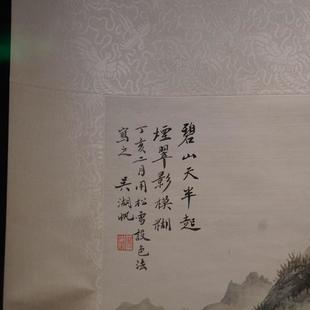 碧山天半起
煙翠影模糊
丁亥二月用松雪設色法
寫之 吳湖帆